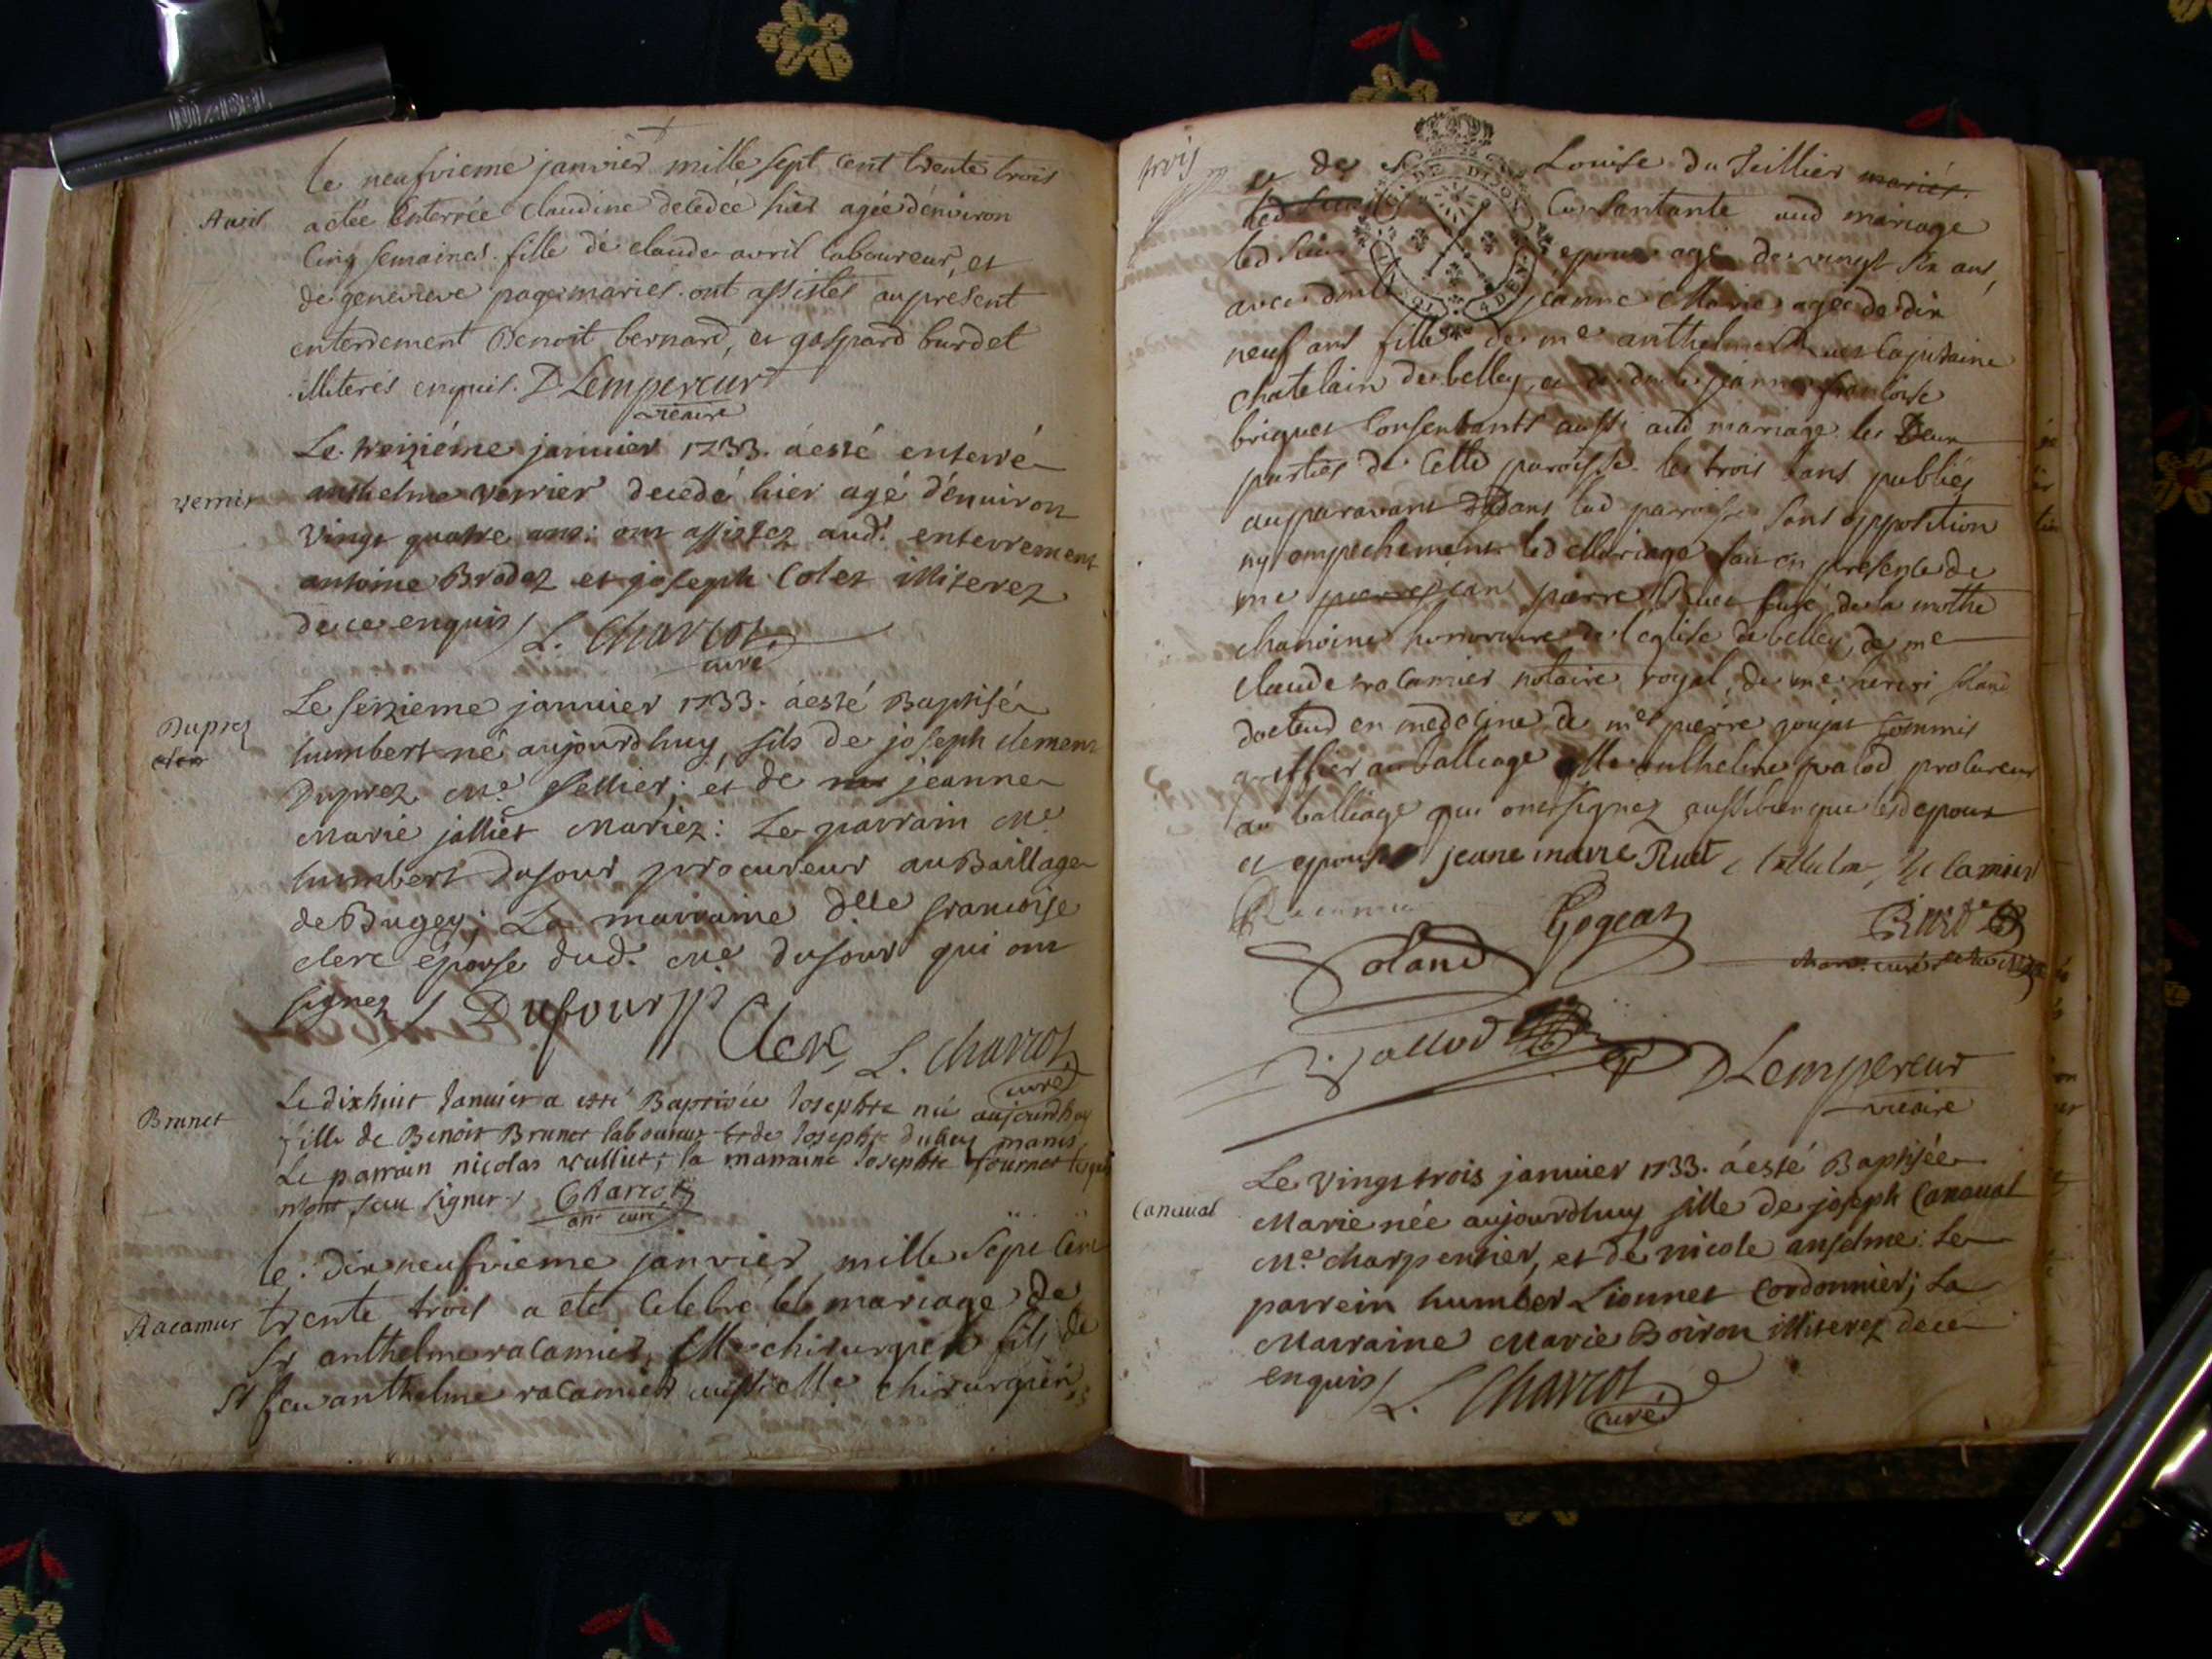 le neufvieme janvier mille sept cent trente trois
Avril
a étée Enterrée Claudine decedée hier agée d'environ
Cinq semaines. fille de claude avril laboureur, et
de genevieve page mariés. ont assistés au present
enterrement Benoit bernard, et gaspard burdet
illiterés enquis. D Lempereur
vicaire
Le treiziéme janvier 1733. à esté enterré
vernier
anthelme verrier decedé hier agé d'enuiron
Vingt quatre ans: ont assistez aud.t enterrement
antoine Brodez et joseph Colet illiterez
de ce enquis / L. Charcot
curé
Le seizieme januier 1733. à esté Baptisé
Duprez
humbert né aujourdhuy, fils de joseph clement
Duprez me. sellier; et de jeanne
Marie jolliet Mariez: Le parrain me
humbert Dufour procureur au Baillage
de Bugey; La marraine Dlle francoise
clerc épouse dud. me. dufour qui ont
signez / Dufour
Clerc L. Charcot
curé
Le dixhuit Januier a esté Baptisée Josephte née aujourdhuy
Brunet
fille de Benoit Brunet laboureur et de Josephte mariés
Le parrain nicolas vulliet; la marraine Josephte fournet
n'ont sceu signer / Charcot
an. curé
le. dix neufvieme janvier mille sept cent
trente trois a eté Celebré le mariage de
Racamier
Sr anthelme racamier, Me chirurgien fils de
Sr feu anthelme racamier aussi Me chirurgien
trois
DE DIJON
et de Louise du Tuillier mariés.
Consentante aud mariage
led Sieur epoux agé de vingt six ans,
avec dlle jeanne Marie agée de dix
neuf ans fille de me anthelme Ruet Capitaine
chatelain de belley, et de dlle jeanne francoise
briquet Consentants aussi aud mariage. les Deux
parties de Cette paroisse. les trois bans publiés
auparavant dans lad parroisse sans opposition
ny empechement. led Mariage fait en presence de
me pierre jean pierre Ruet curé de la mothe
chanoine honnoraire de l'eglise de belley, de me
claude racamier notaire royal, de me henri roland
docteur en medecine, de me pierre goujat commis
greffier au balliage Me anthelme palod procureur
au balliage qui ont signez aussi bien que les epoux
et epouse jeane marie Ruet Racamier
Roland
Pallod
D Lempereur
vicaire
Le vingt trois januier 1733. à esté Baptisée
Canaual
Marie née aujourdhuy fille de joseph Canaual
Me. charpentier, et de nicole anselme: Le
parrein humber Lionnet Cordonnier; La
Marraine Marie Boiron illiterez de ce
enquis / L. Charcot
curé